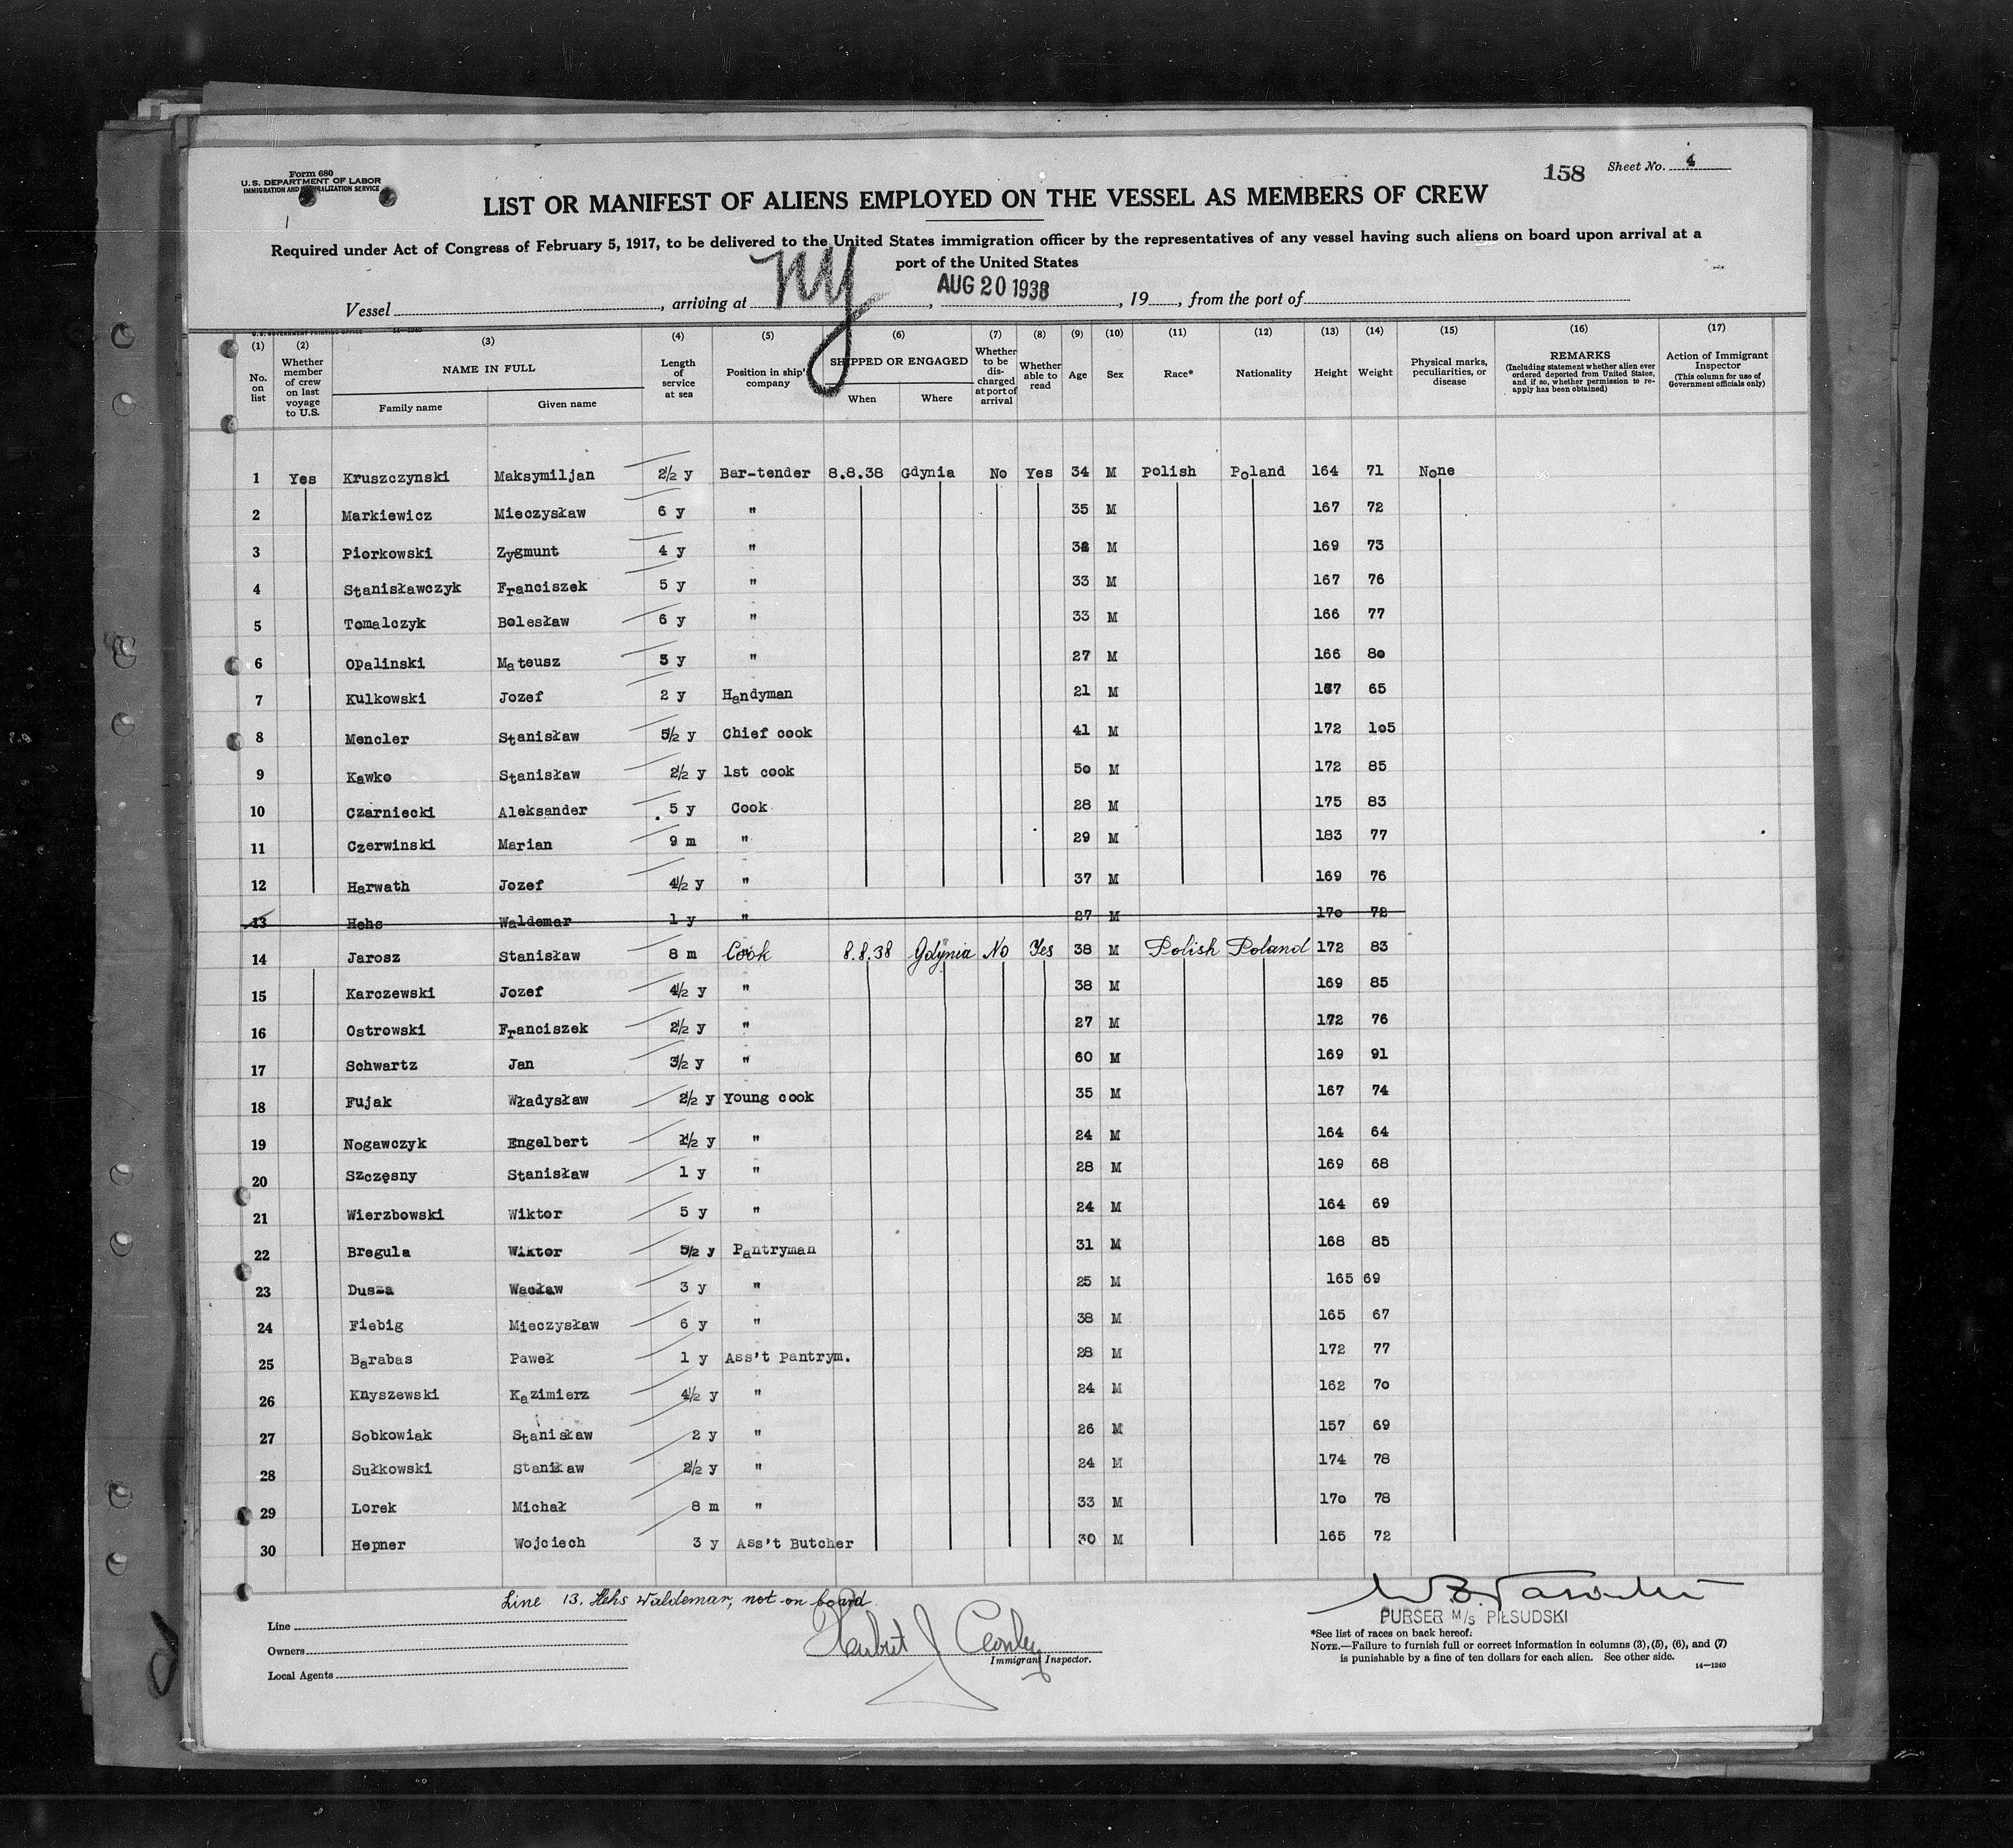 Form 680
U.S. DEPARTMENT OF LABOR
IMMIGRATION AND NATURALIZATION SERVICE
158 Sheet No. 4
LIST OR MANIFEST OF ALIENS EMPLOYED ON THE VESSEL AS MEMBERS OF CREW
Required under Act of Congress of February 5, 1917, to be delivered to the United States immigration officer by the representatives of any vessel having such aliens on board upon arrival at a
port of the United States
Vessel , arriving at NY , AUG 20 1938 , 19 , from the port of
U.S. GOVERNMENT PRINTING OFFICE 14—1240
(1) No. on list
(2) Whether member of crew on last voyage to U.S.
(3) NAME IN FULL
Family name Given name
(4) Length of service at sea
(5) Position in ship's company
(6) SHIPPED OR ENGAGED
When Where
(7) Whether to be discharged at port of arrival
(8) Whether able to read
(9) Age
(10) Sex
(11) Race*
(12) Nationality
(13) Height
(14) Weight
(15) Physical marks, peculiarities, or disease
(16) REMARKS
(Including statement whether alien ever ordered deported from United States, and if so, whether permission to re-apply has been obtained)
(17) Action of Immigrant Inspector
(This column for use of Government officials only)
1 Yes Kruszczynski Maksymiljan 2½ y Bar-tender 8.8.38 Gdynia No Yes 34 M Polish Poland 164 71 None
2 Markiewicz Mieczysław 6 y " 35 M 167 72
3 Piorkowski Zygmunt 4 y " M 169 73
4 Stanisławczyk Franciszek 5 y " 33 M 167 76
5 Tomalczyk Bolesław 6 y " 33 M 166 77
6 Opalinski Mateusz 5 y " 27 M 166 80
7 Kulkowski Jozef 2 y Handyman 21 M 65
8 Mencler Stanisław 5½ y Chief cook 41 M 172 105
9 Kawko Stanisław 2½ y 1st cook 50 M 172 85
10 Czarniecki Aleksander 5 y Cook 28 M 175 83
11 Czerwinski Marian 9 m " 29 M 183 77
12 Harwath Jozef 4½ y " 37 M 169 76
13 Hehs Waldemar 1 y " 27 M 170 72
14 Jarosz Stanisław 8 m Cook 8.8.38 Gdynia No Yes 38 M Polish Poland 172 83
15 Karczewski Jozef 4½ y " 38 M 169 85
16 Ostrowski Franciszek 2½ y " 27 M 172 76
17 Schwartz Jan 3½ y " 60 M 169 91
18 Fujak Władysław 2½ y Young cook 35 M 167 74
19 Nogawczyk Engelbert y " 24 M 164 64
20 Szczęsny Stanisław 1 y " 28 M 169 68
21 Wierzbowski Wiktor 5 y " 24 M 164 69
22 Bregula Wiktor 5½ y Pantryman 31 M 168 85
23 Dusza Wacław 3 y " 25 M 165 69
24 Fiebig Mieczysław 6 y " 38 M 165 67
25 Barabas Paweł 1 y Ass't pantrym. 28 M 172 77
26 Knyszewski Kazimierz 4½ y " 24 M 162 70
27 Sobkowiak Stanisław 2 y " 26 M 157 69
28 Sułkowski Staniław 2½ y " 24 M 174 78
29 Lorek Michał 8 m " 33 M 170 78
30 Hepner Wojciech 3 y Ass't Butcher 30 M 165 72
Line 13. Hehs Waldemar, not on board
Line
Owners
Local Agents
Immigrant Inspector.
PURSER M/S PIŁSUDSKI
*See list of races on back hereof.
NOTE.—Failure to furnish full or correct information in columns (3), (5), (6), and (7)
is punishable by a fine of ten dollars for each alien. See other side.
14—1240